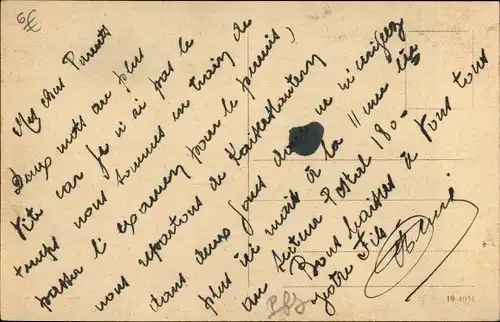 6€
Mes chers Parents
Deux mots au plus
vite car je n'ai pas le
temps nous sommes en train de
passer l'examen pour le permis,
nous repartons de Kaiserslautern
dans deux jours donc ne m'écrivez
plus ici mais à la 11ème
au Secteur Postal 180-
Bons baisers à Vous tous
votre Fils
Henri
19 4034